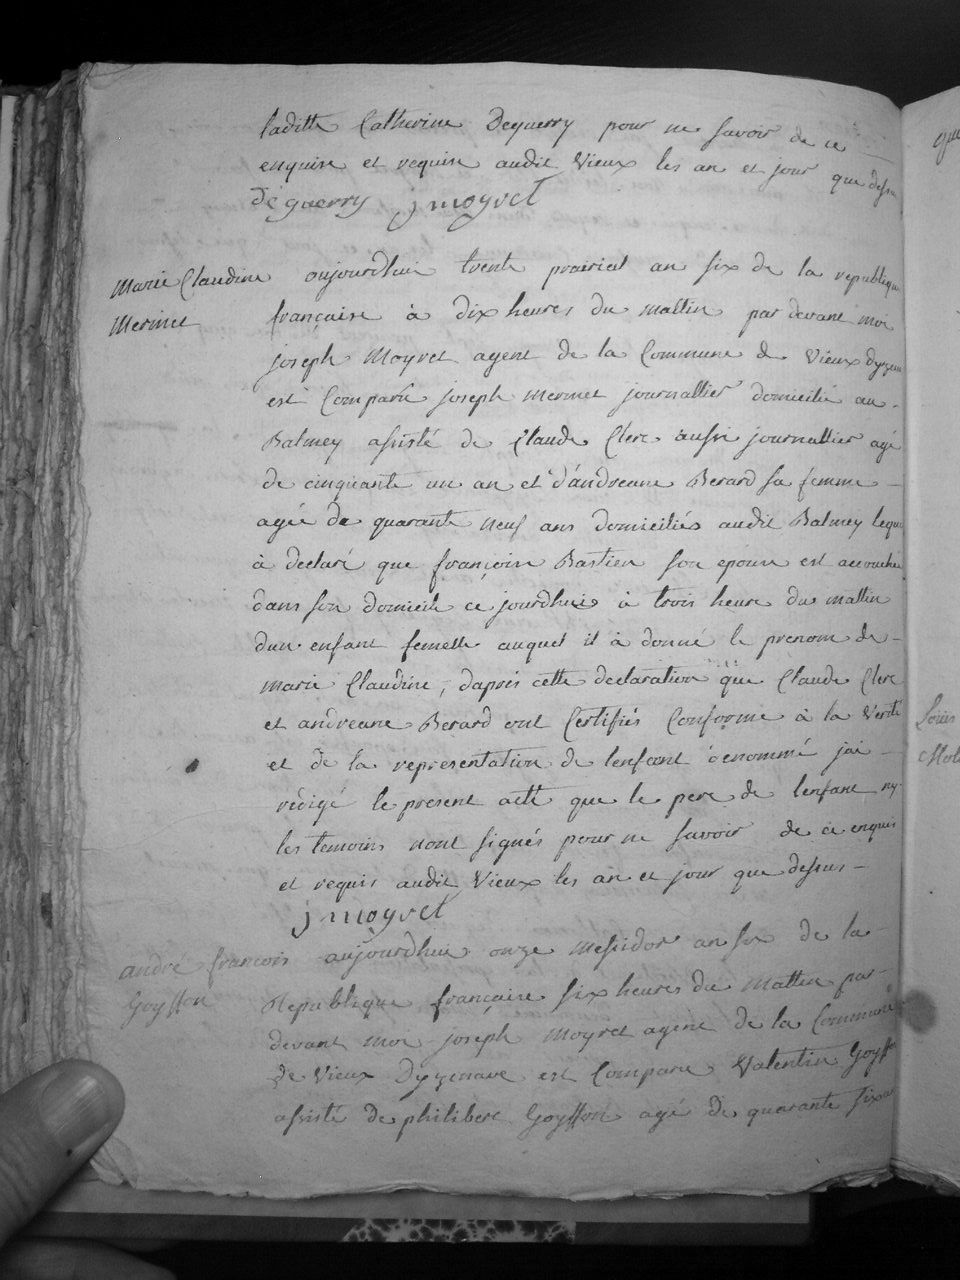 laditte Catherine Deguerry pour ne savoir de ce
enquise et requise audit Vieux les an et jour que dessu
Deguerry j moyret
Marie Claudine aujourdhui trente prairial an six de la republique
Mermet française à dix heures du mattin par devant moi
joseph Moyret agent de la Commune de Vieux dyzen
est Comparü joseph mermet journallier domicilié au
Balmey assisté de Claude Clerc aussi journallier agé
de cinquante un an et d'andreane Berard sa femme
agée de quarante neuf ans domiciliés audit Balmey lequ
à declaré que françoise Bastien son epouse est accouchée
dans son domicile ce jourdhui à trois heure du mattin
dun enfant femelle auquel il à donné le prenom de
marie Claudine, daprés cette declaration que Claude Clerc
et andreane Berard ont Certifiés Conforme à la Verité
et de la representation de lenfant denommé jai
redigé le present acte que le pere de lenfant ny
les temoins nont signés pour ne savoir de ce enquis
et requis audit Vieux les an et jour que dessus
j moyret
andré francois aujourdhui onze messidor an six de la
Goyffon Republique française six heures du mattin par
devant moi joseph moyret agent de la Commune
de Vieux Dyzenave est Comparu Valentin Goyffon
assisté de philibert Goyffon agé de quarante six an
Louis